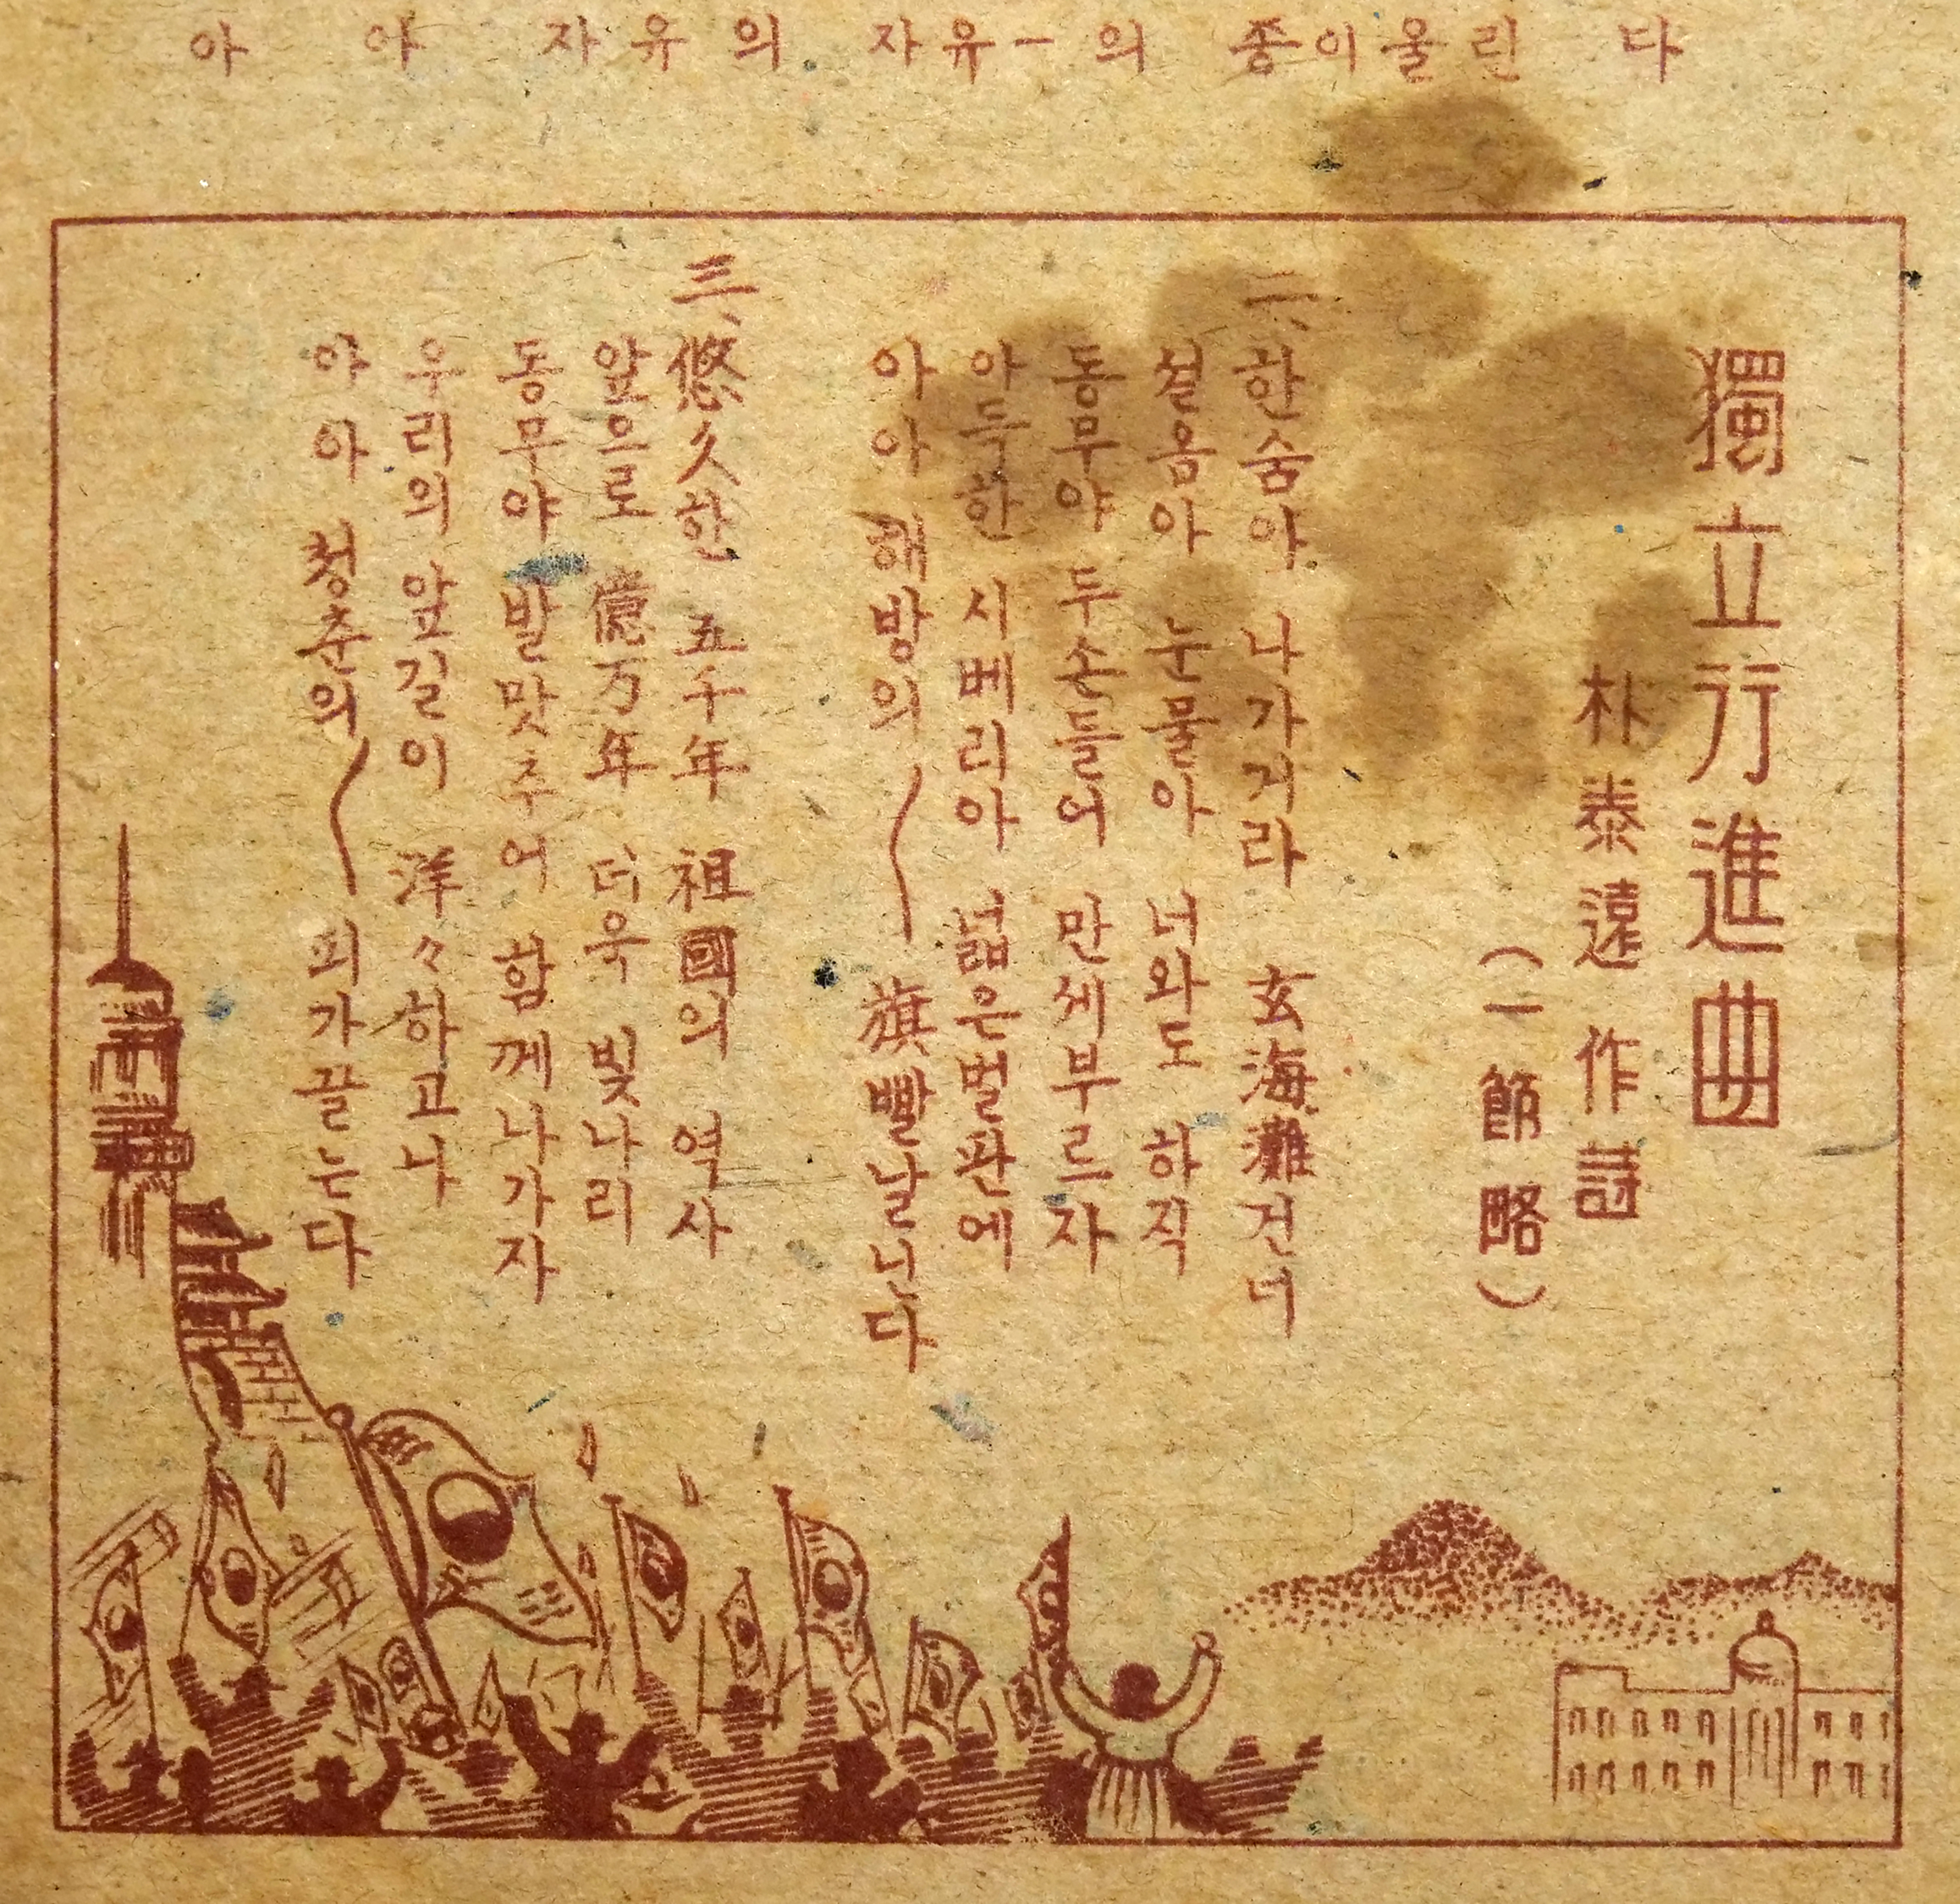 아 아 자유의 자유ㅡ의 종이울린 다
獨立行進曲
朴泰遠 作詩
(一節略)
二、한숨아 나가거라 玄海灘건너
설음아 눈물아 너와도 하직
동무야 두손들어 만세부르자
아득한 시베리아 넓은벌판에
아아 해방의〳〵 旗빨날닌다
三、悠久한 五千年 祖國의 역사
앞으로 億万年 더욱 빛나리
동무야 발맞추어 함께나가자
우리의 앞길이 洋々하고나
아아 청춘의〳〵 피가끌는다